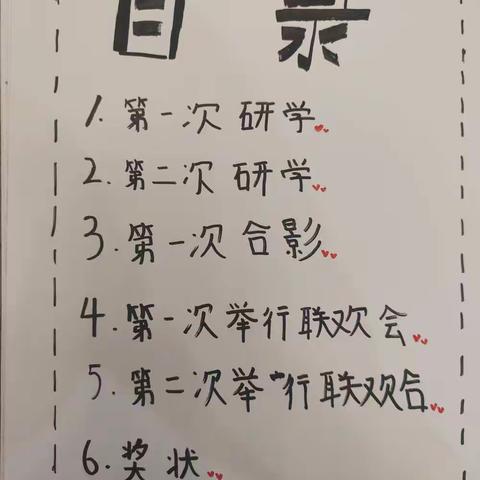 目录
1.第一次研学
2.第二次研学
3.第一次合影
4.第一次举行联欢会
5.第二次举行联欢合
6.奖状